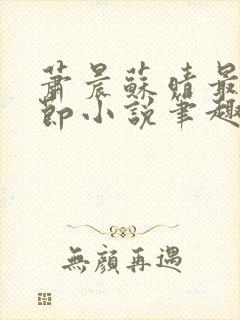 蕭晨蘇晴最
節小說筆趣
無顏再遇